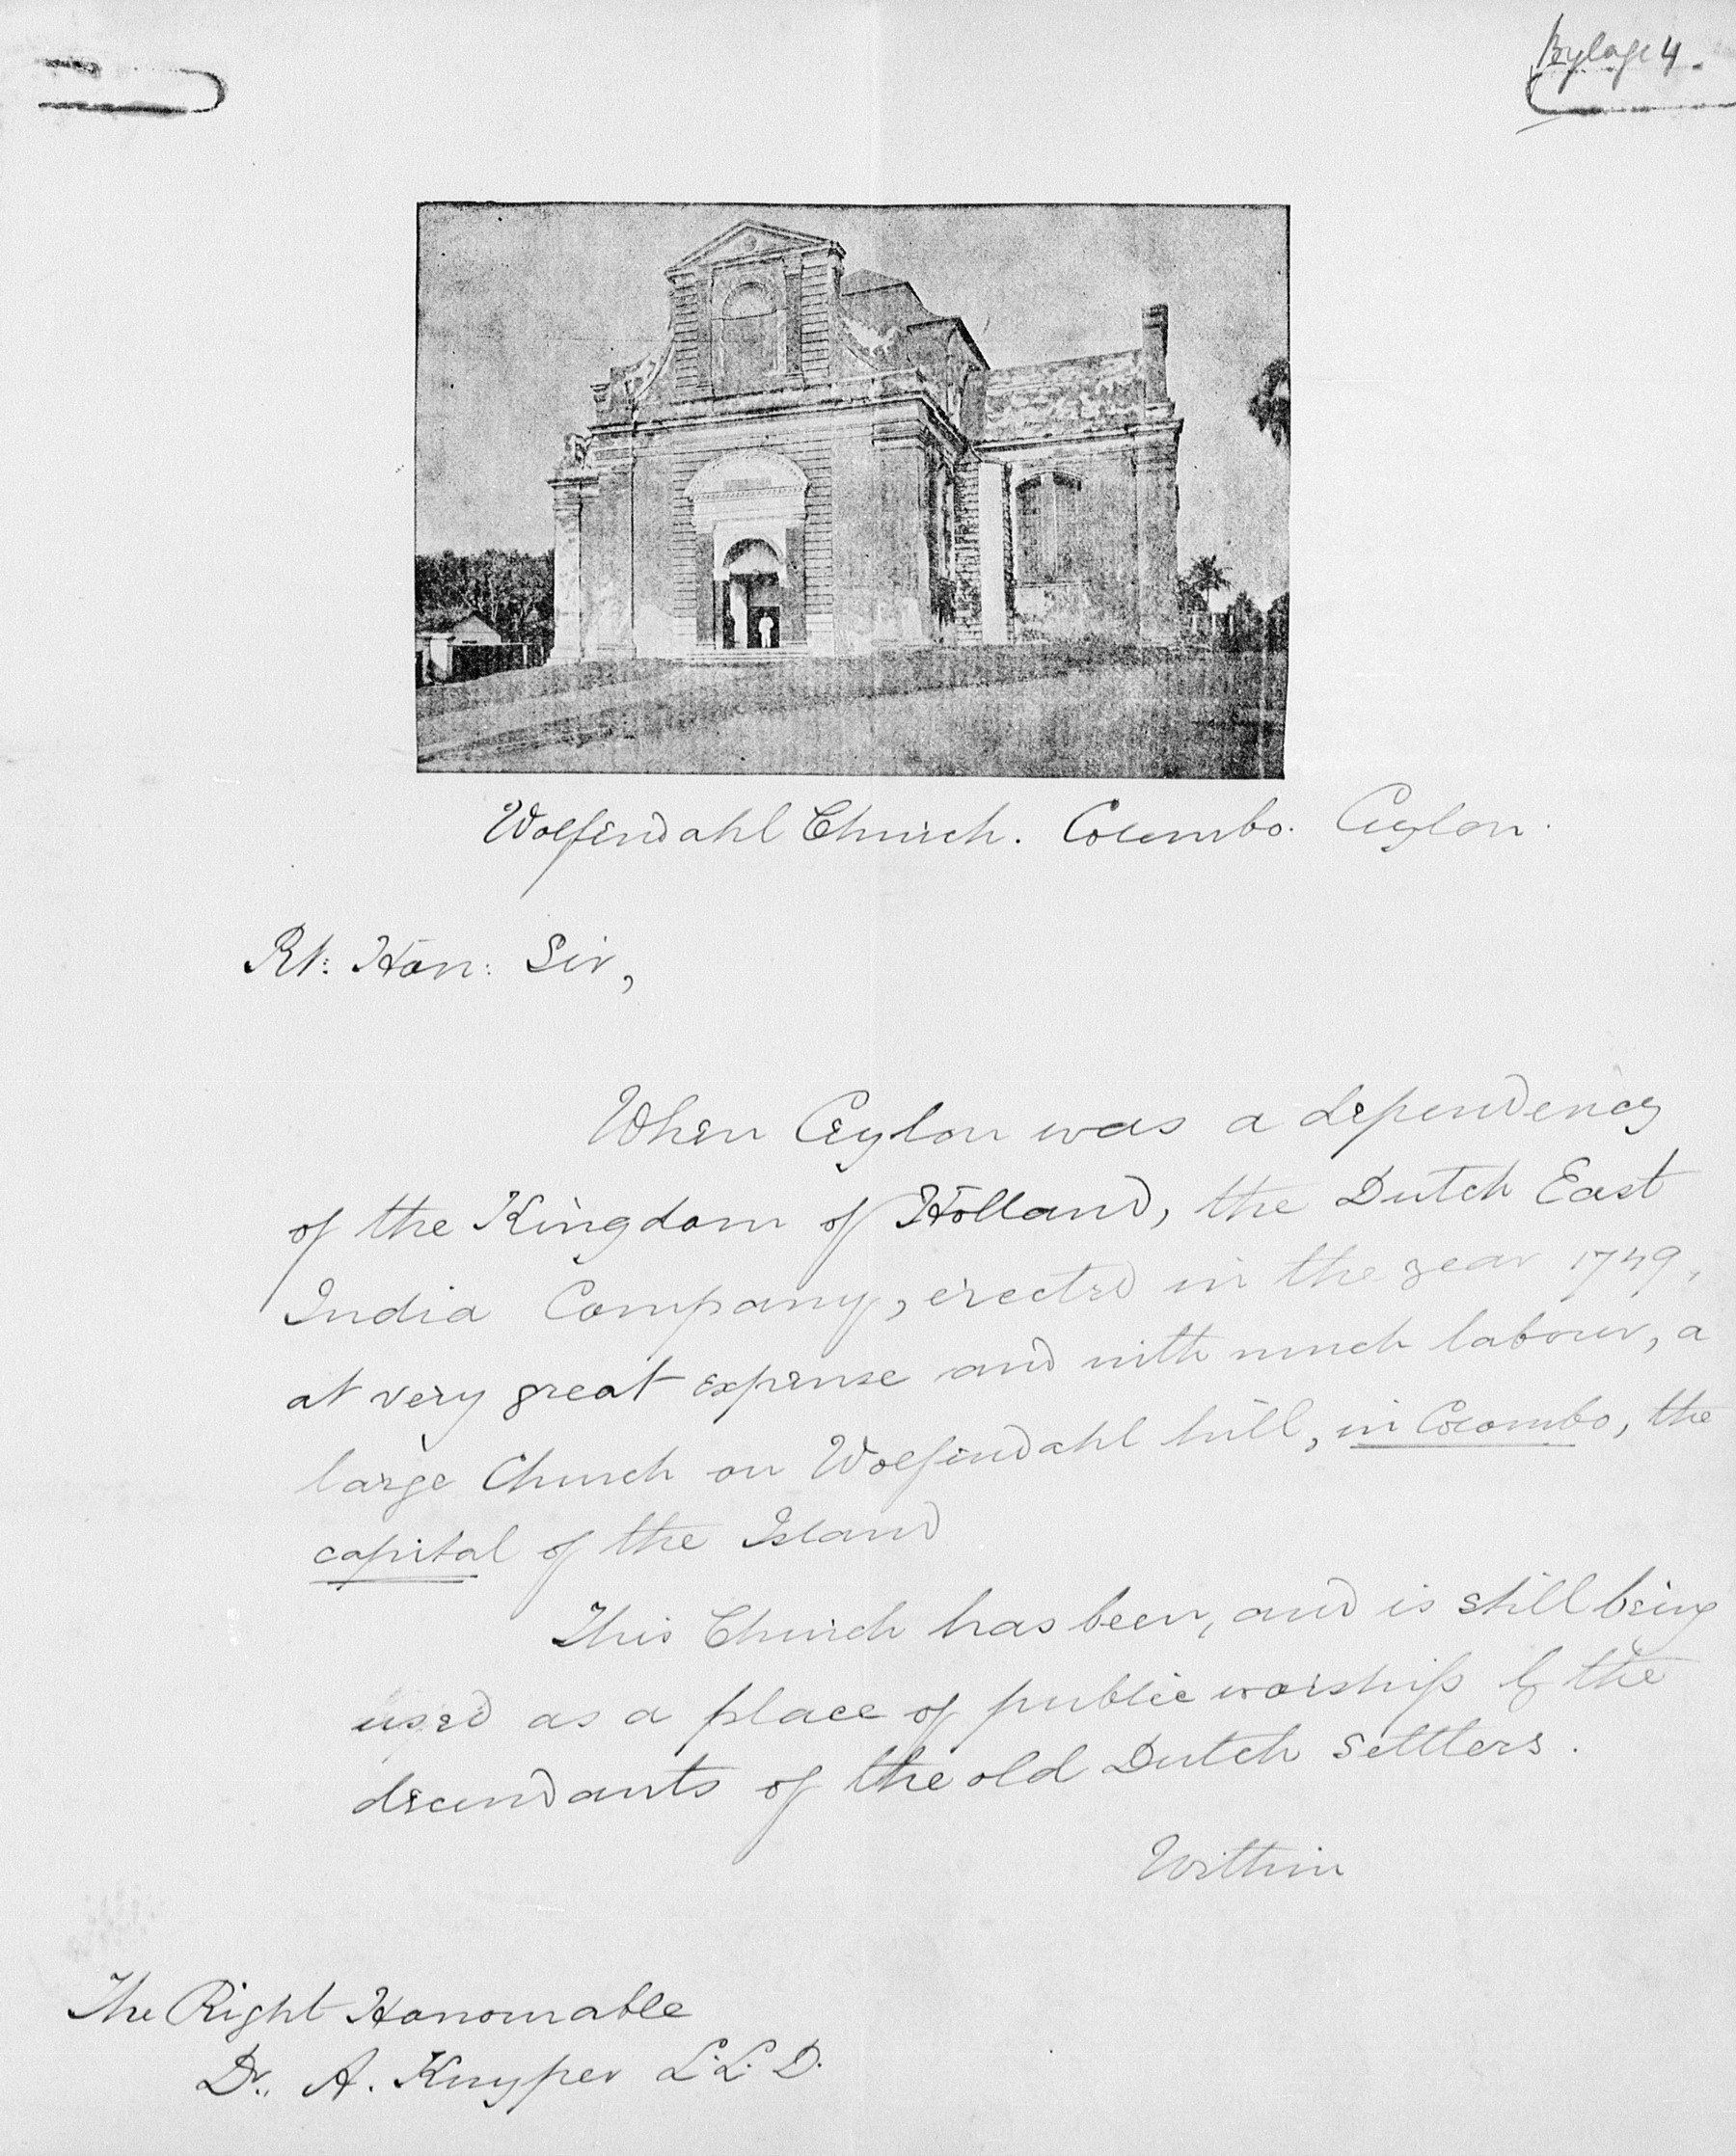 Bylage 4.
Wolfendahl Church. Colombo. Ceylon.
Rt: Hon: Sir,
When Ceylon was a dependency
of the Kingdom of Holland, the Dutch East
India Company, erected in the year 1749,
at very great expense and with much labour, a
large Church on Wolfendahl hill, in Colombo, the
capital of the Island
This Church has been, and is still being
used as a place of public worship by the
decendants of the old Dutch settlers.
Within
The Right Honourable
Dr. A. Kuyper L.L.D.